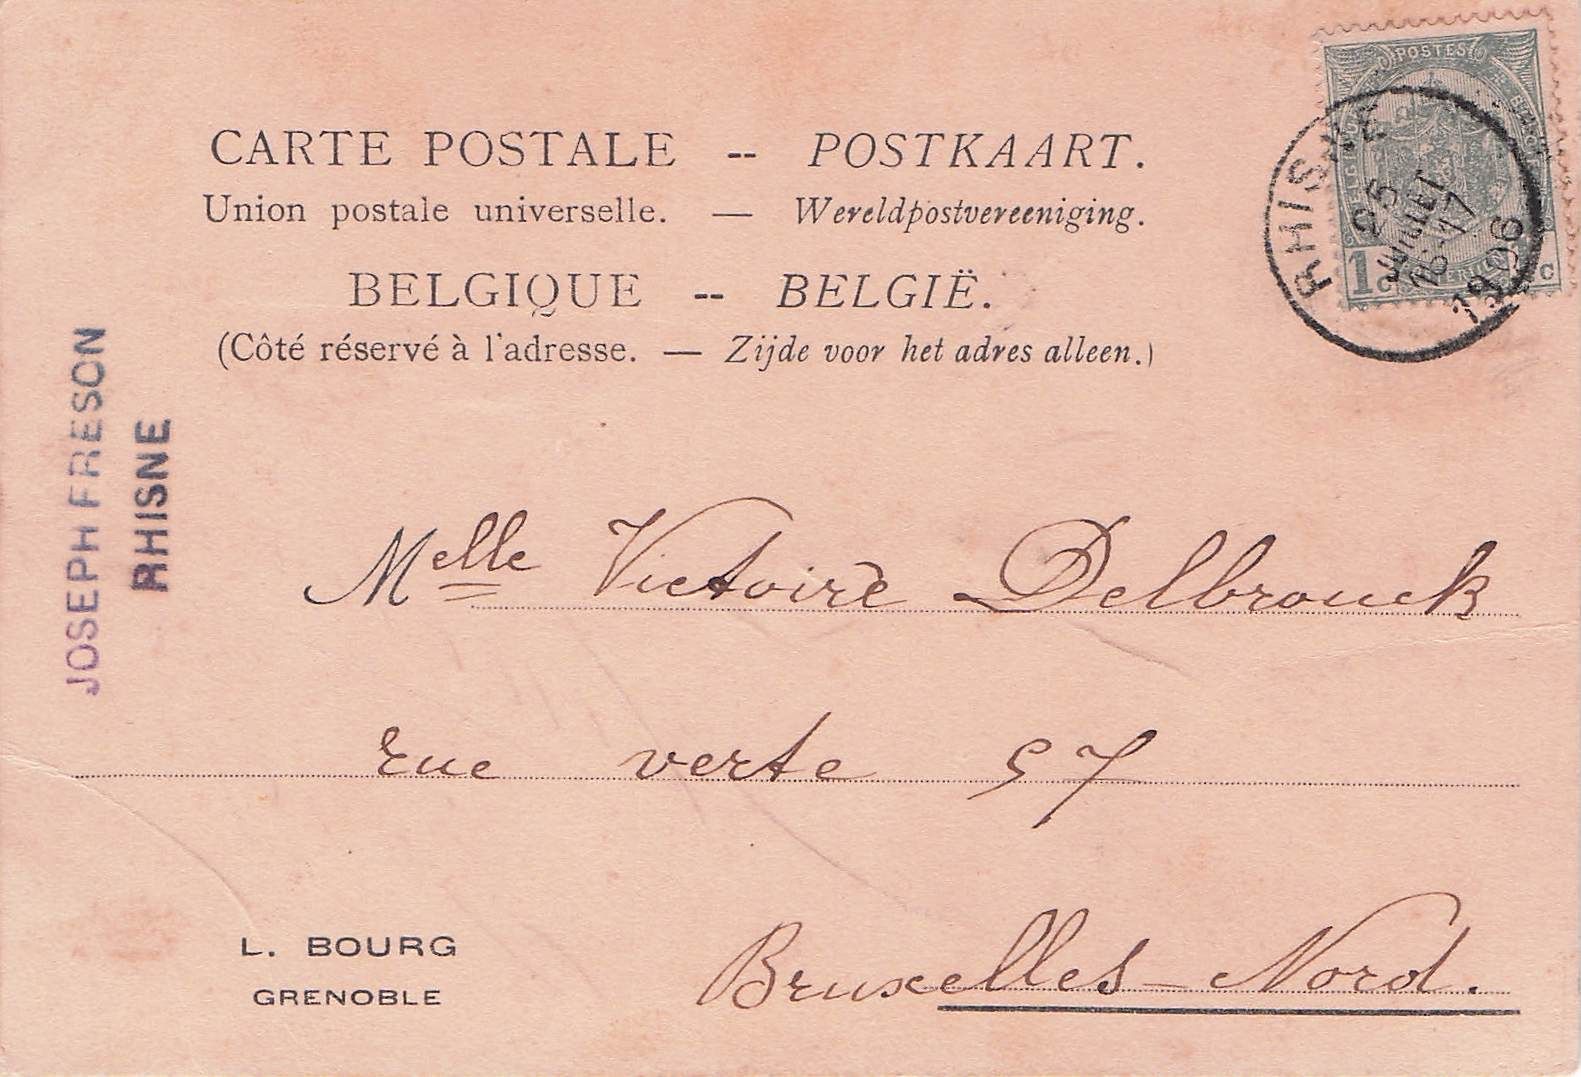 CARTE POSTALE -- POSTKAART.
Union postale universelle. — Wereldpostvereeniging.
BELGIQUE -- BELGIË.
(Côté réservé à l'adresse. — Zijde voor het adres alleen.)
POSTES
1 C
RHISNE
25
JUILLET
16-17
1906
JOSEPH FRESON
RHISNE
Melle Victoire Delbrouck
Rue verte 57
Bruxelles-Nord.
L. BOURG
GRENOBLE